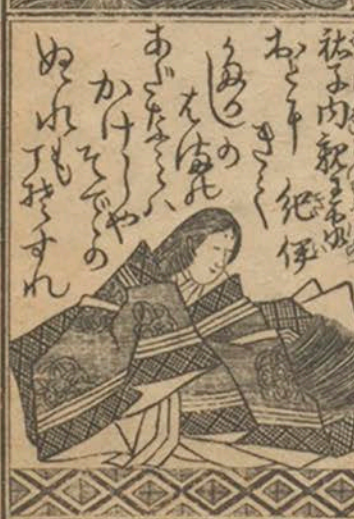 祐子内親王家
紀伊
おとに
きく
たかしの
はまの
あだなみハ
かけじや
そでの
ぬれもこそすれ